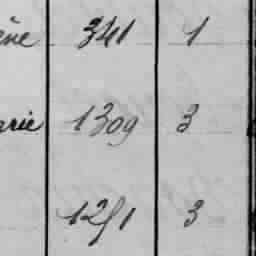 ène 341 1
arie 1309 3
1251 3